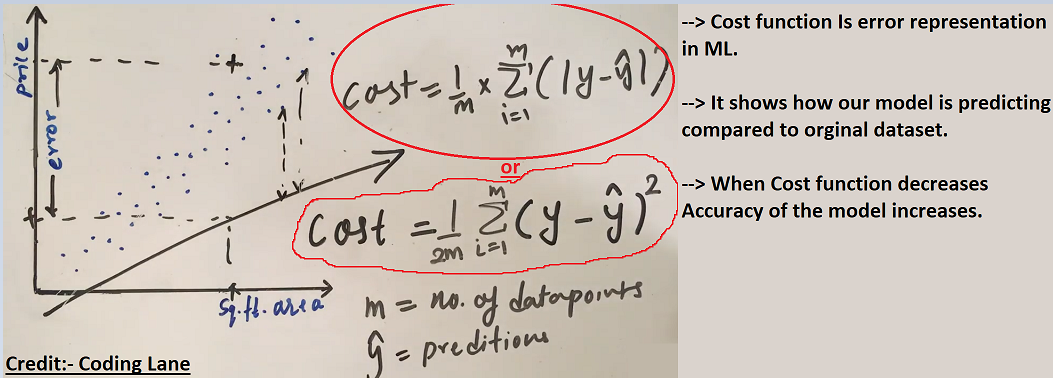 price
error
sq.ft. area
cost = 1/m × Σ_{i=1}^{m} (|y-ŷ|)
or
Cost = 1/2m Σ_{i=1}^{m} (y-ŷ)²
m = no. of datapoints
ŷ = preditions
Credit:- Coding Lane
--> Cost function Is error representation
in ML.
--> It shows how our model is predicting
compared to orginal dataset.
--> When Cost function decreases
Accuracy of the model increases.